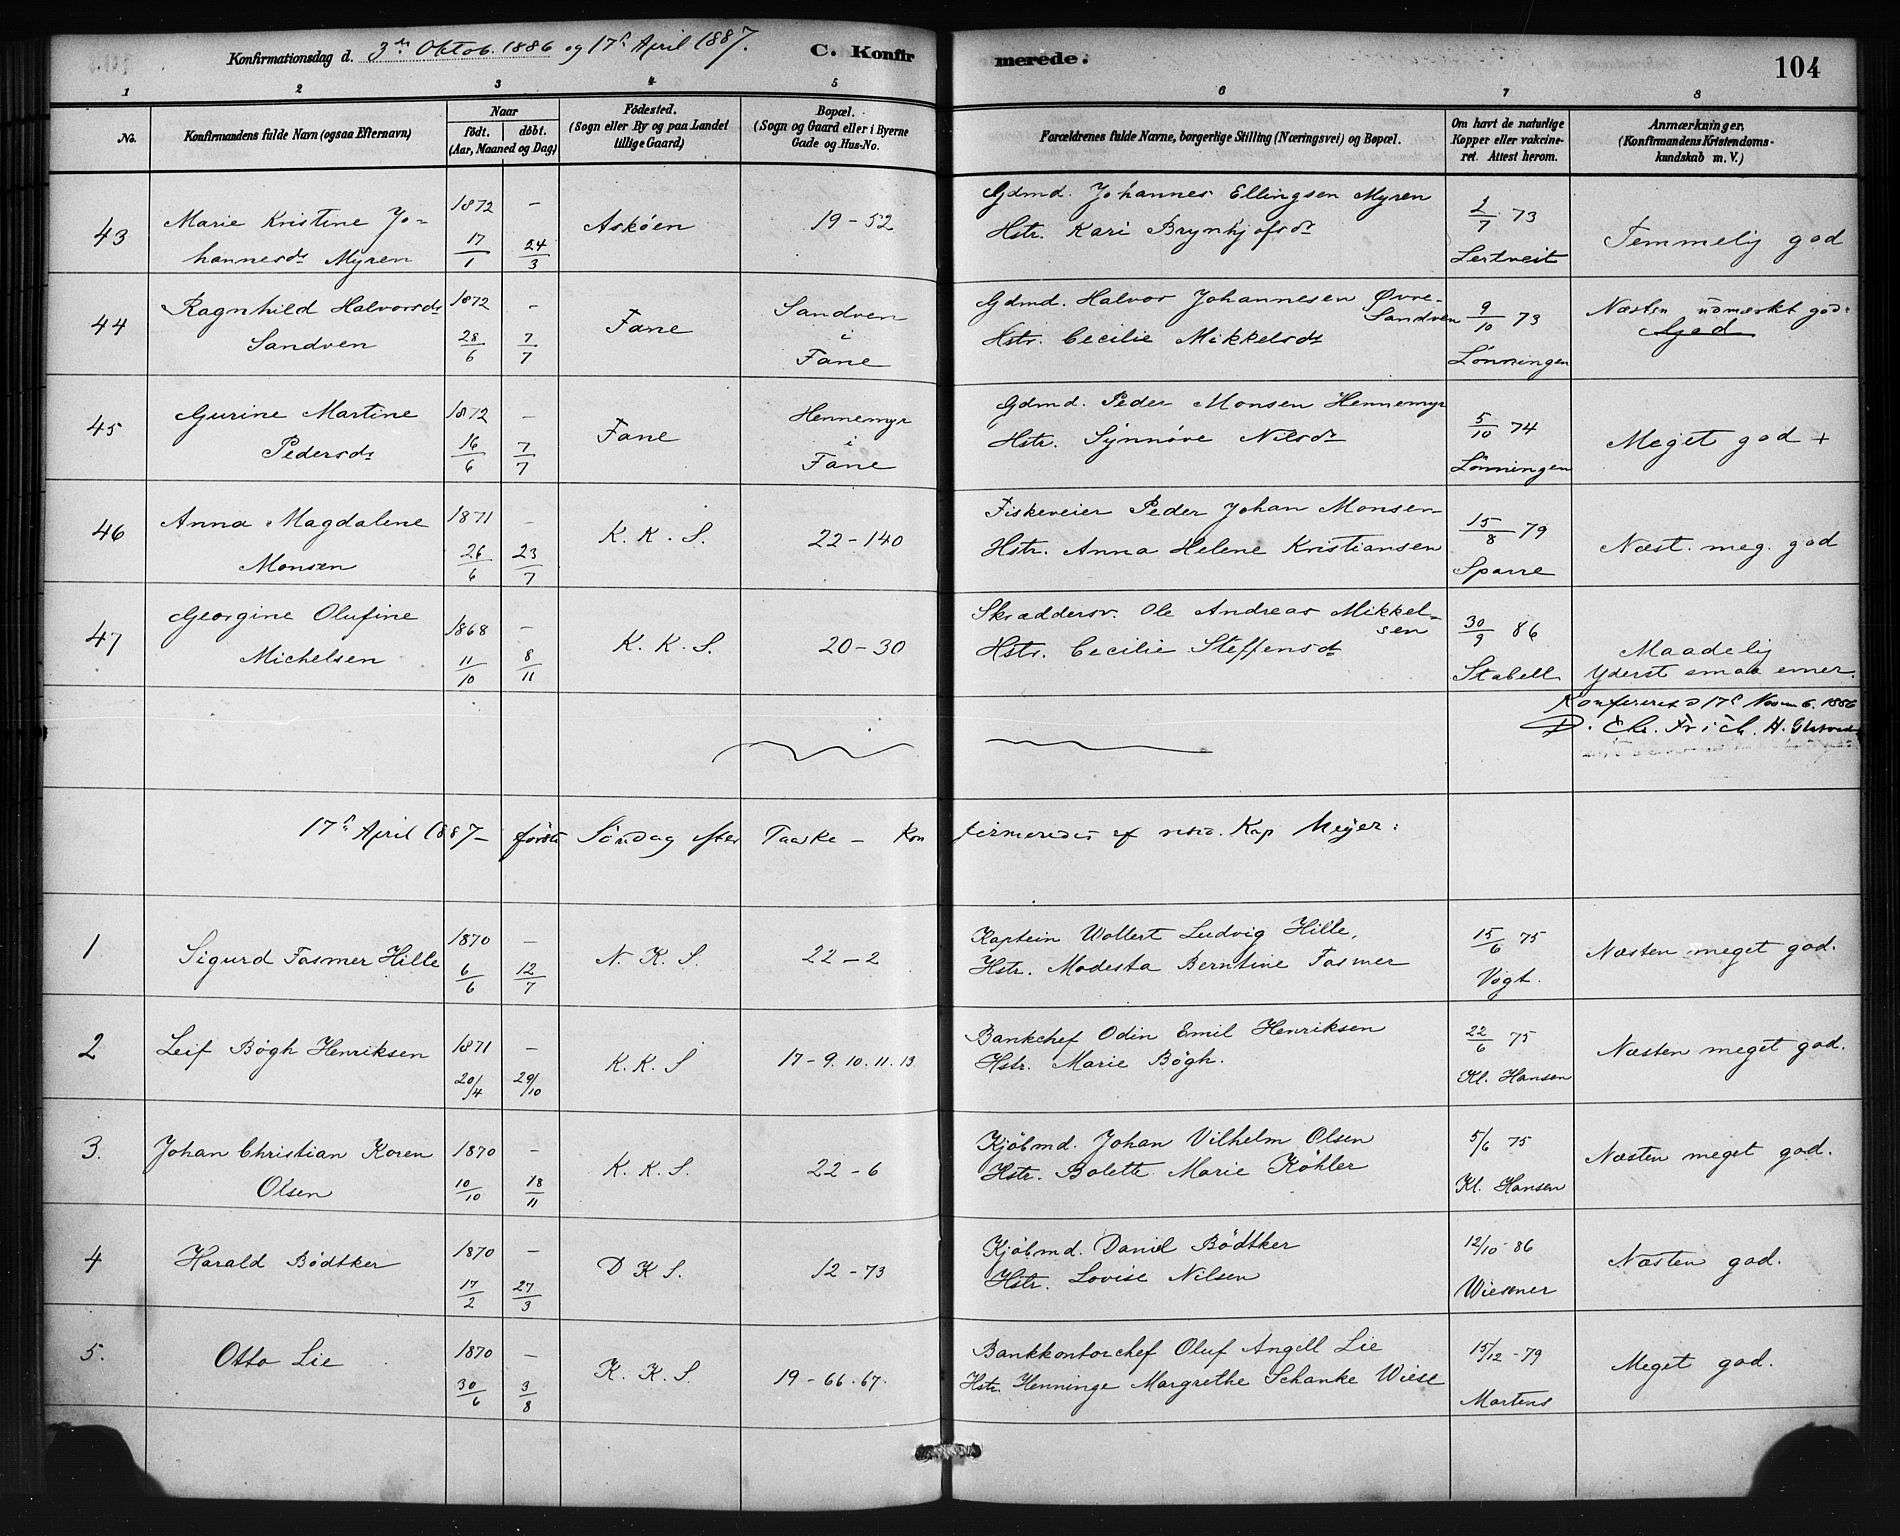 Konfirmationsdag d. 3die Oktob. 1886 og 17d April 1887. C. Konfirmerede. 104
1 2 3 4 5 6 7 8
No.
Konfirmandens fulde Navn (ogsaa Efternavn)
Naar
födt. döbt.
(Aar, Maaned og Dag)
Födested.
(Sogn eller By og paa Landet
tillige Gaard)
Bopæl.
(Sogn og Gaard eller i Byerne
Gade og Hus-No.
Forældrenes fulde Navne, borgerlige Stilling (Næringsvei) og Bopæl.
Om havt de naturlige
Kopper eller vakcine-
ret. Attest herom.
Anmærkninger.
(Konfirmandens Kristendoms-
kundskab m. V.)
43 Marie Kristine Jo-
hannesdr Myren
1872 –
17/1 24/3
Askøen
19 – 52
Gdmd. Johannes Ellingsen Myren
Hstr. Kari Brynhjofsdr
2/7 73
Lertveit
Temmelig god
44 Ragnhild Halvorsdr
Sandven
1872 –
28/6 7/7
Fane
Sandven
i
Fane
Gdmd. Halvor Johannesen Øvre-
Sandven
Hstr. Cecilie Mikkelsdr
9/10 73
Lönningen
Næsten udmærket god.
45 Gurine Martine
Pedersdr
1872 –
16/6 7/7
Fane
Hennemyr
i
Fane
Gdmd. Peder Monsen Hennemyr
Hstr. Synnøve Nilsdr
5/10 74
Lönningen
Meget god +
46 Anna Magdalene
Monsen
1871 –
26/6 23/7
K. K. S.
22 – 140
Fiskeveier Peder Johan Monsen
Hstr. Anna Helene Kristiansen
15/8 79
Sparre
Næst. meg. god
47 Georgine Olufine
Michelsen
1868 –
11/10 8/11
K. K. S.
20 – 30
Skræddersv. Ole Andreas Mikkel-
sen
Hstr. Cecilie Steffensdr
30/9 86
Stabell
Maadelig
Yderst smaa evner.
Konfereret d 17d Novemb. 1886
17d April 1887 – første Söndag efter Paaske – Konfirmeredes af resid. Kap Meyer:
1 Sigurd Fasmer Hille
1870 –
6/6 12/7
N. K. S.
22 – 2
Kaptein Wollert Ludvig Hille,
Hstr. Modesta Berntine Fasmer
15/6 75
Vogt.
Næsten meget god.
2 Leif Bøgh Henriksen
1871 –
20/4 29/10
K. K. S
17 – 9. 10. 11. 13
Bankchef Odin Emil Henriksen
Hstr. Marie Bøgh.
22/6 75
Kl. Hansen
Næsten meget god.
3. Johan Christian Koren
Olsen
1870 –
10/10 18/11
K. K. S.
22 – 6
Kjöbmd. Johan Vilhelm Olsen
Hstr. Bolette Marie Köhler
5/6 75
Kl. Hansen
Næsten meget god.
4 Harald Bödtker
1870 –
17/2 27/3
D K S.
12 – 73
Kjöbmd. Daniel Bödtker
Hstr. Lovise Nilsen
12/10 – 86
Wiesener
Næsten god.
5. Otto Lie
1870 –
30/6 3/8
K. K. S.
19 – 66. 67.
Bankkontorchef Oluf Angell Lie
Hstr. Henninge Margrethe Schanke Wiese
15/12 – 79
Martens
Meget god.